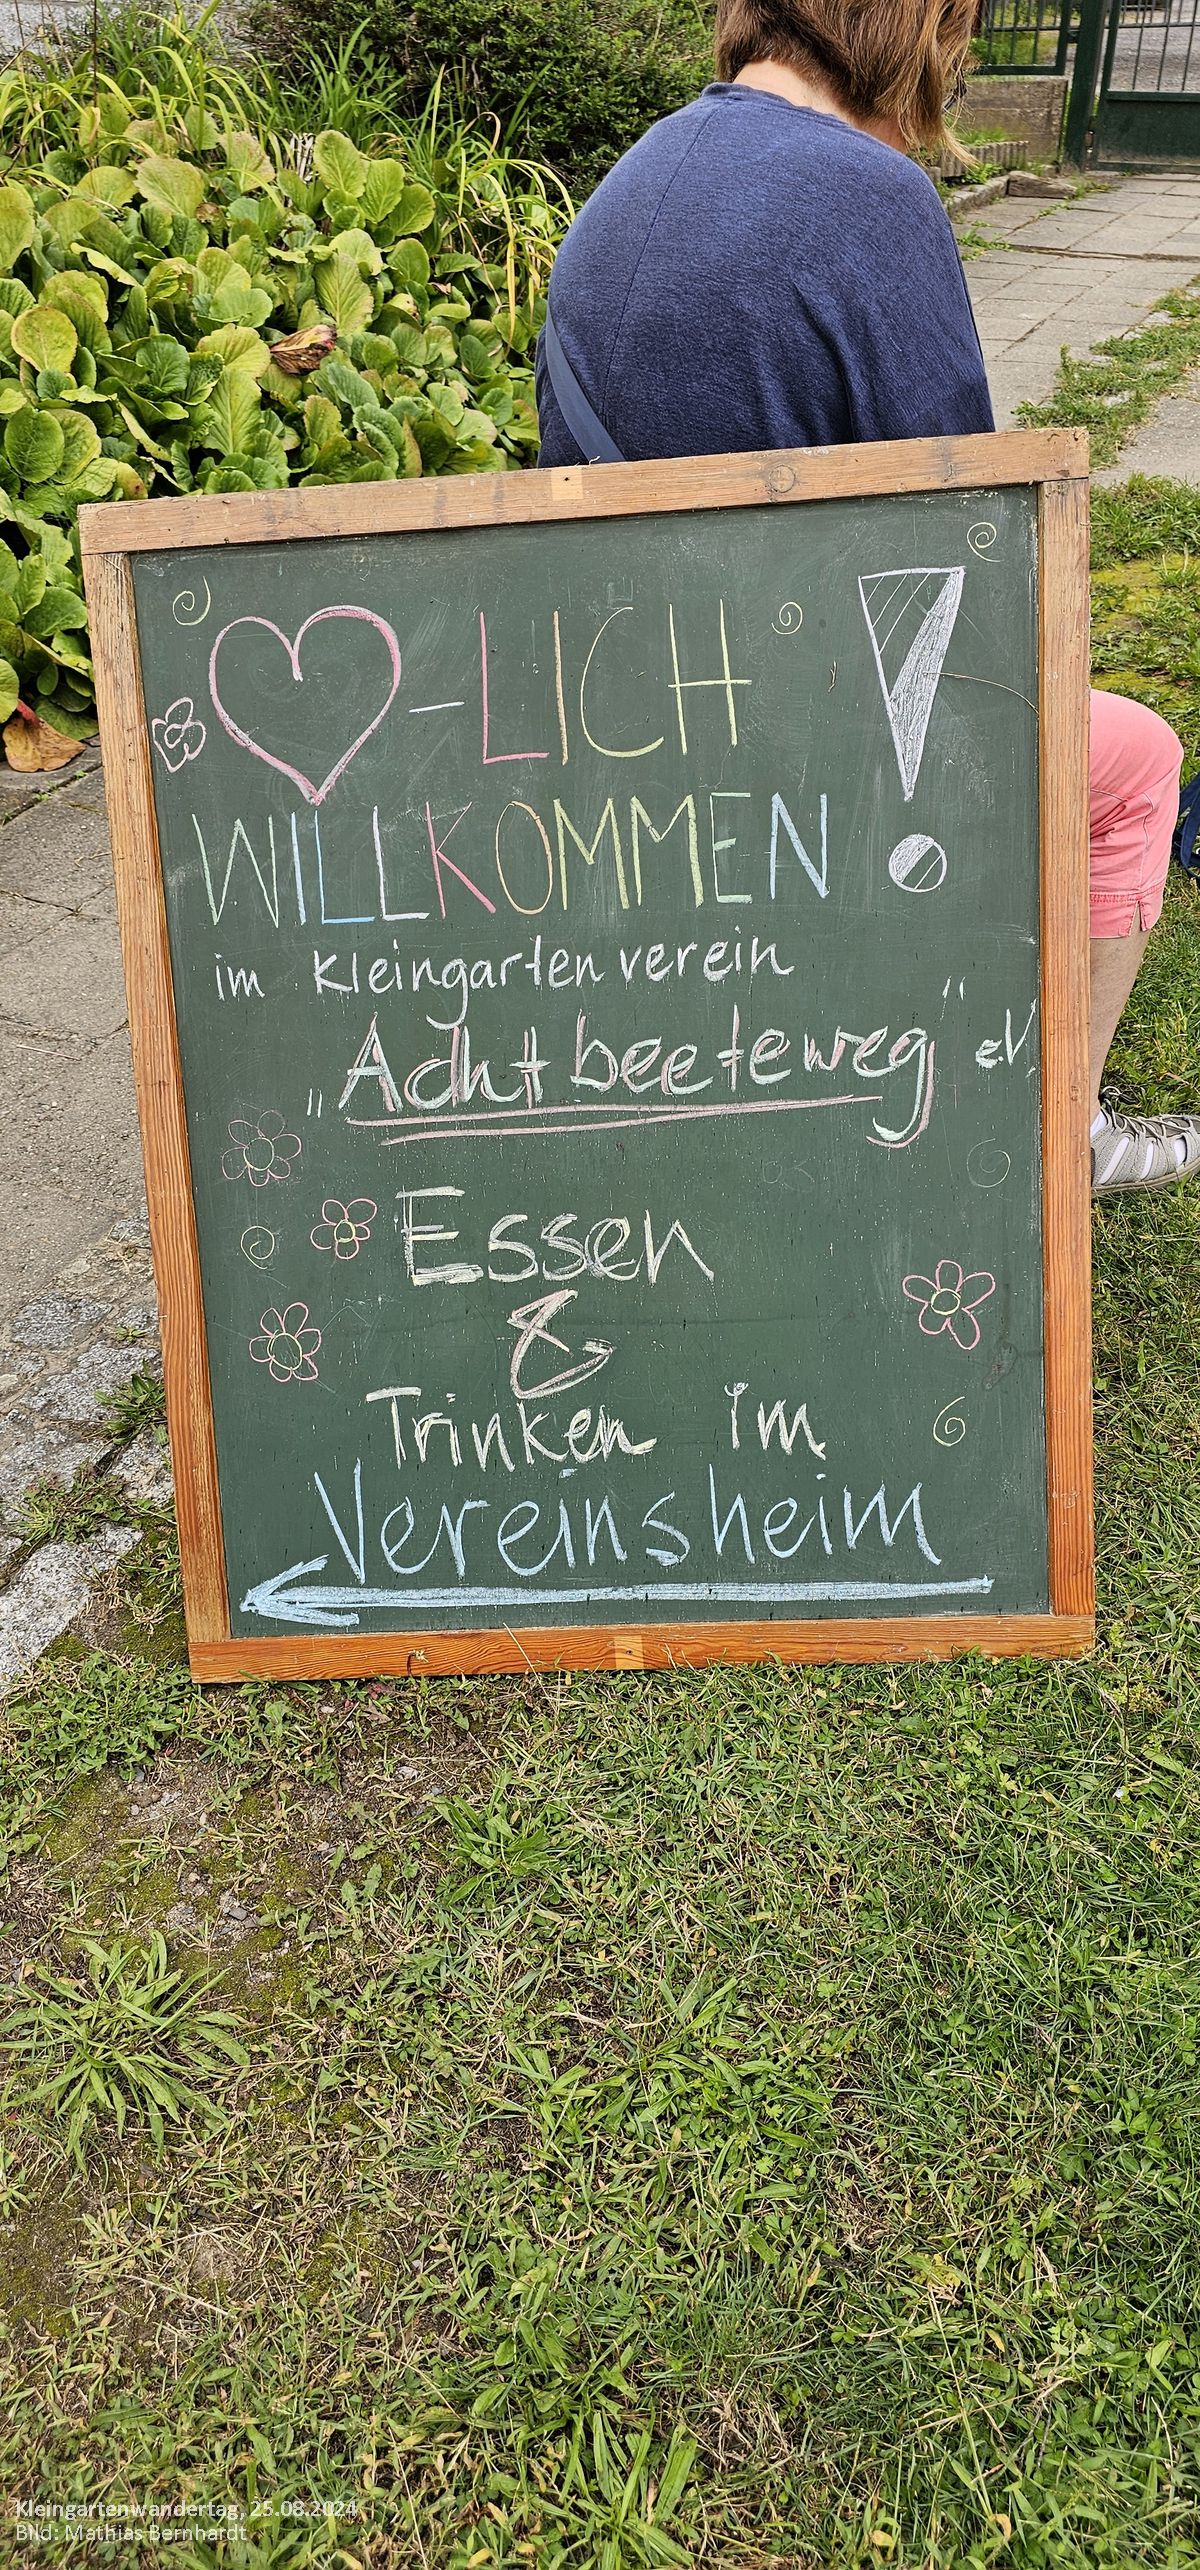 ♡-LICH !
WILLKOMMEN
im Kleingartenverein
„Achtbeeteweg“ eV
Essen
&
Trinken im
Vereinsheim
Kleingartenwandertag, 25.08.2024
Bild: Mathias Bernhardt